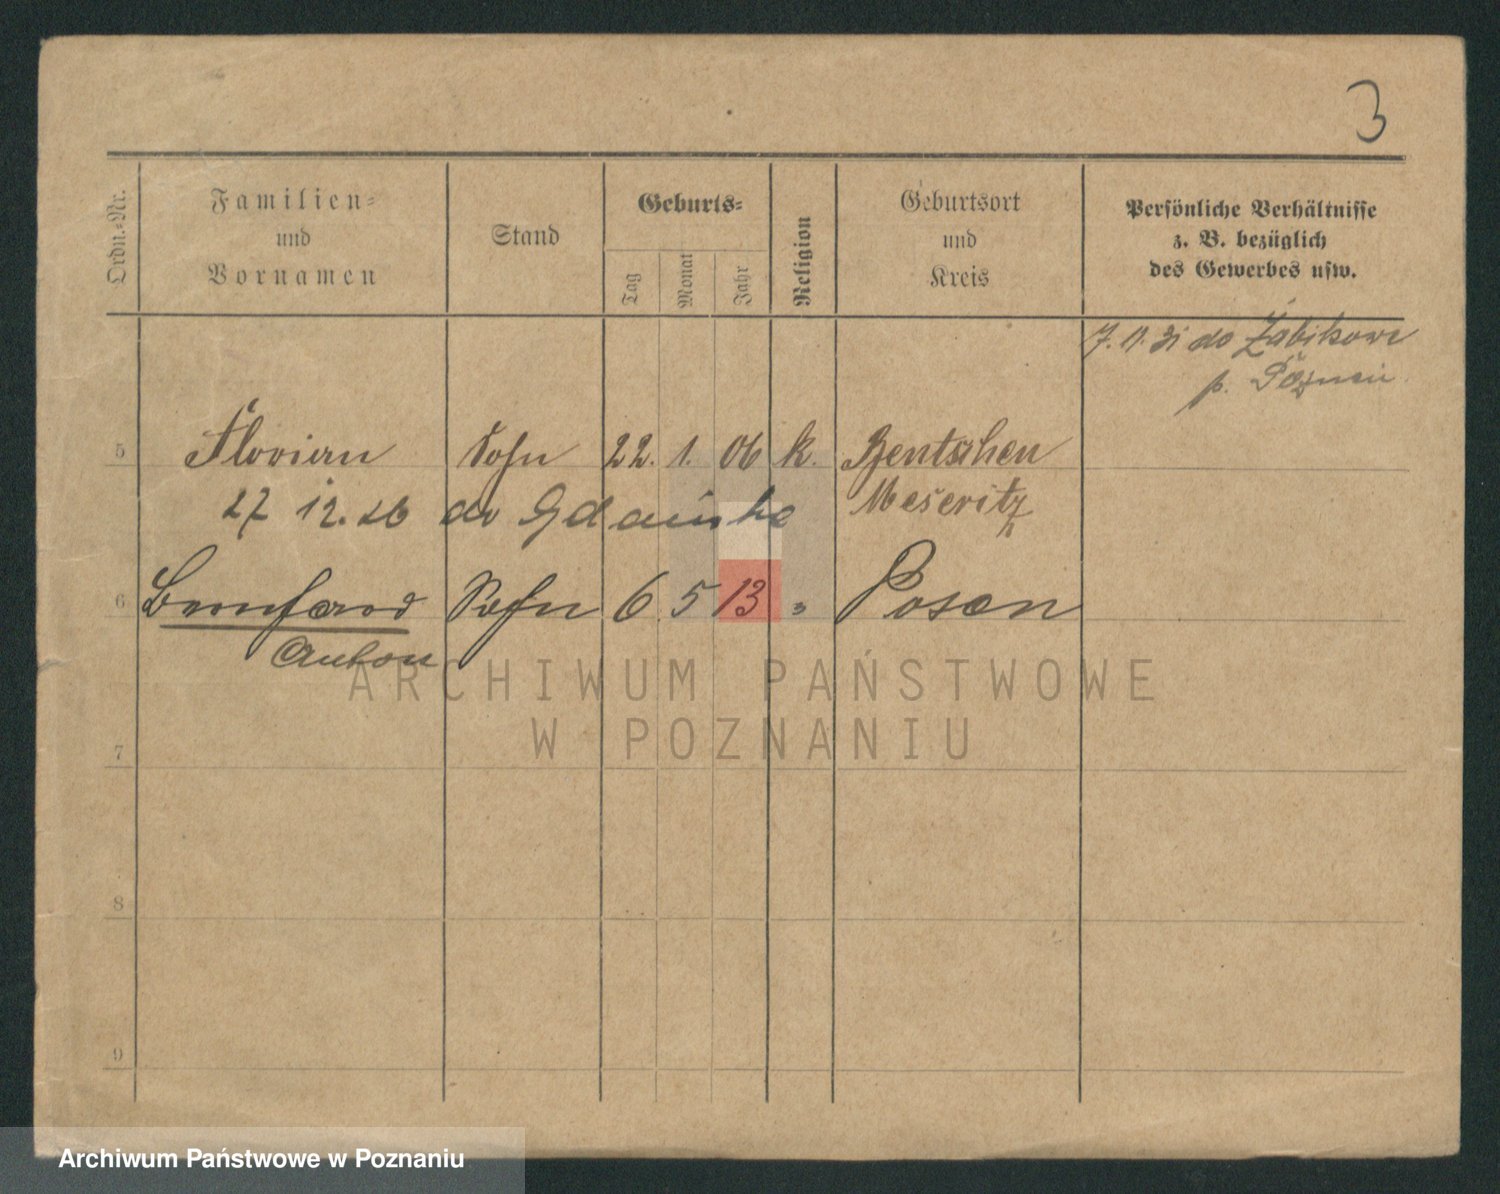 3
Ordn.-Nr.
Familien-
und
Vornamen
Stand
Geburts-
Tag
Monat
Jahr
Religion
Geburtsort
und
Kreis
Persönliche Verhältnisse
z. B. bezüglich
des Gewerbes usw.
7. 11. 31 do Żabikowa
p. Poznań
5 Florian Sohn 22. 1. 06 k. Bentschen
27 12. 26 do Gdańska Meseritz
6 Bernhard Sohn 6 5 13 " Posen
Anton
ARCHIWUM PAŃSTWOWE
W POZNANIU
7
8
9
Archiwum Państwowe w Poznaniu